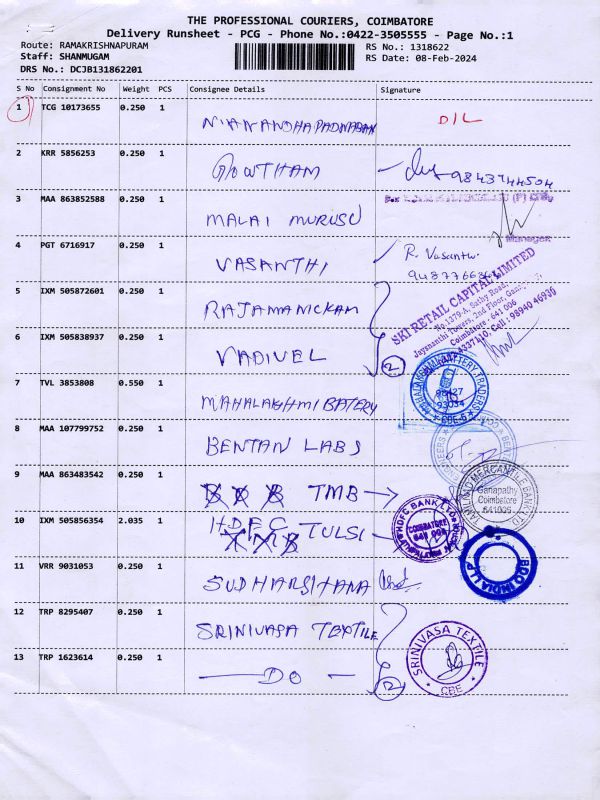 THE PROFESSIONAL COURIERS, COIMBATORE
Delivery Runsheet - PCG - Phone No.:0422-3505555 - Page No.:1
Route: RAMAKRISHNAPURAM
RS No.: 1318622
Staff: SHANMUGAM
RS Date: 08-Feb-2024
DRS No.: DCJB131862201
S No Consignment No Weight PCS Consignee Details Signature
1 TCG 10173655 0.250 1 D/L
2 KRR 5856253 0.250 1 GOWTHAM 9843744504
3 MAA 863852588 0.250 1 MALAI MURUSU
Manager
4 PGT 6716917 0.250 1 VASANTHI R. Vasanthi
5 IXM 505872601 0.250 1 RAJAMANICKAM
SKI RETAIL CAPITAL LIMITED
No.1379-A, Sathy Road,
Jayshanthi Towers, 2nd Floor,
Coimbatore - 641 006
4337110, Cell: 98940 46930
6 IXM 505838937 0.250 1 VADIVEL 2
7 TVL 3853808 0.550 1 MAHALAKHMI BATERY
MAHALAKSHMI BATTERY TRADERS
93034
CBE-6
8 MAA 107799752 0.250 1 BENTAN LABS
9 MAA 863483542 0.250 1 TMB
TAMILNAD MERCANTILE BANK LTD
Ganapathy
Coimbatore
641006
10 IXM 505856354 2.035 1 HDFC TULSI
HDFC BANK LTD
COIMBATORE
641 006
BDO INDIA LLP
11 VRR 9031053 0.250 1 SUDHARSHANA
12 TRP 8295407 0.250 1 SRINIVASA TEXTILE
SRINIVASA TEXTILE
CBE
13 TRP 1623614 0.250 1 — DO — 2